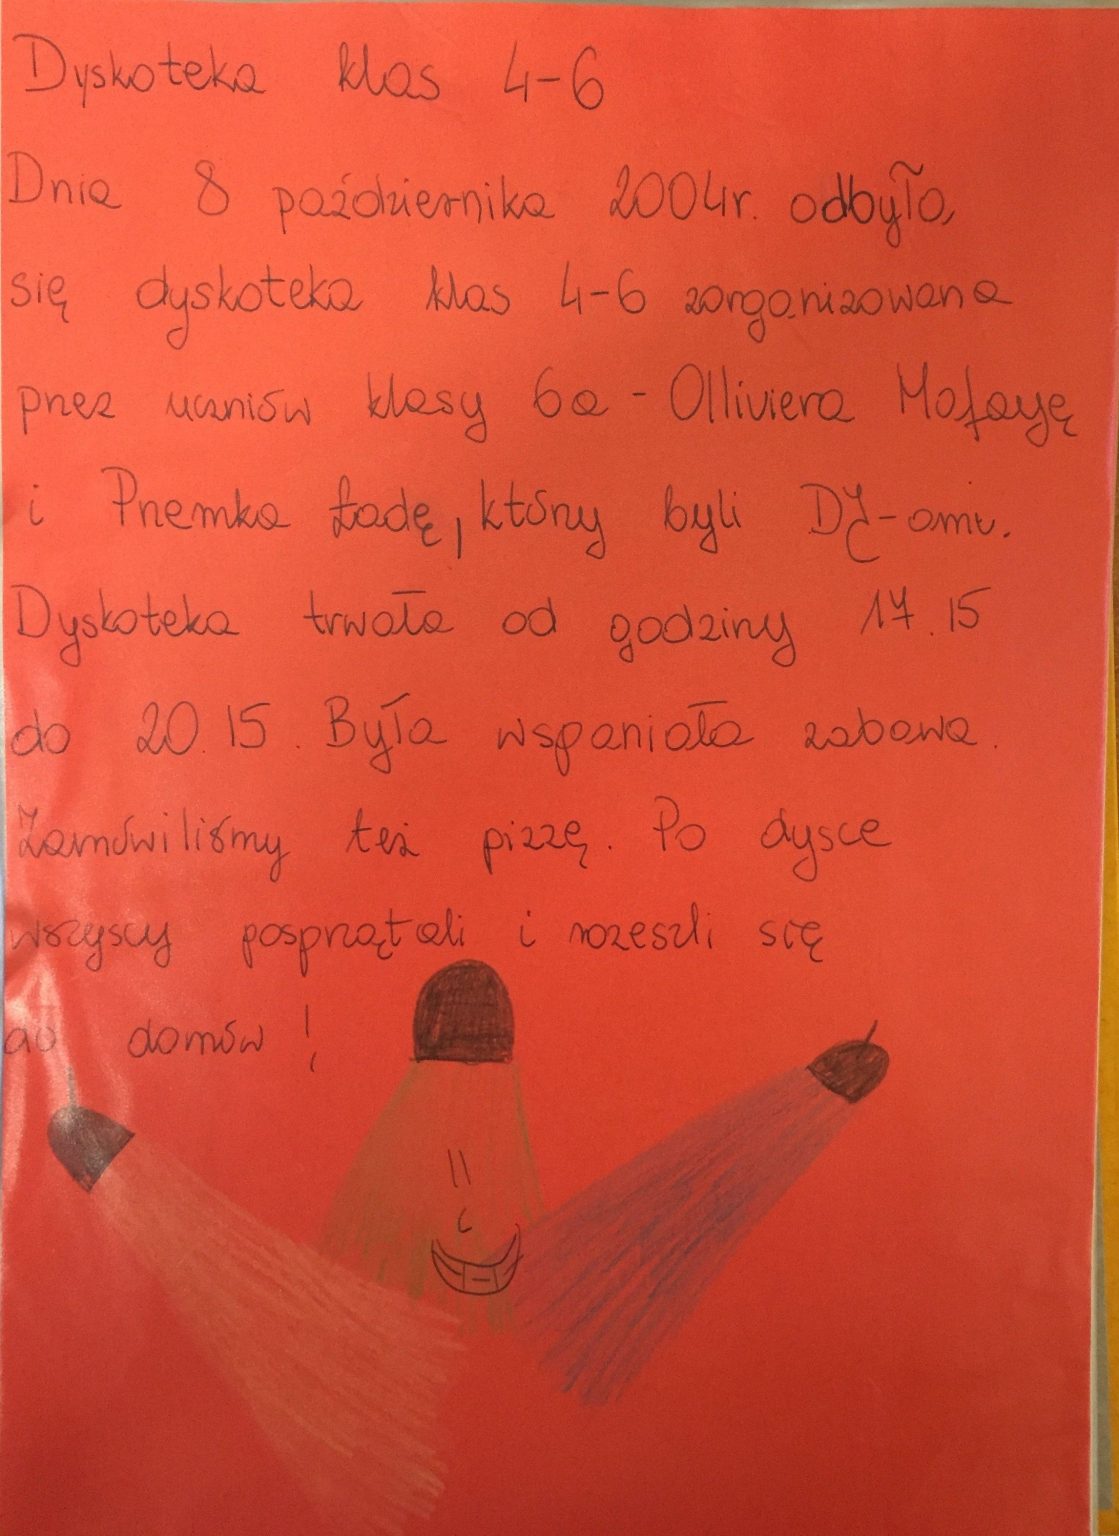 Dyskoteka klas 4-6
Dnia 8 października 2004r. odbyła
się dyskoteka klas 4-6 zorganizowana
przez uczniów klasy 6a - Olliviera Mafayę
i Przemka Ładę, którzy byli DJ-ami.
Dyskoteka trwała od godziny 17.15
do 20.15. Była wspaniała zabawa.
Zamówiliśmy też pizzę. Po dysce
wszyscy posprzątali i rozeszli się
do domów!